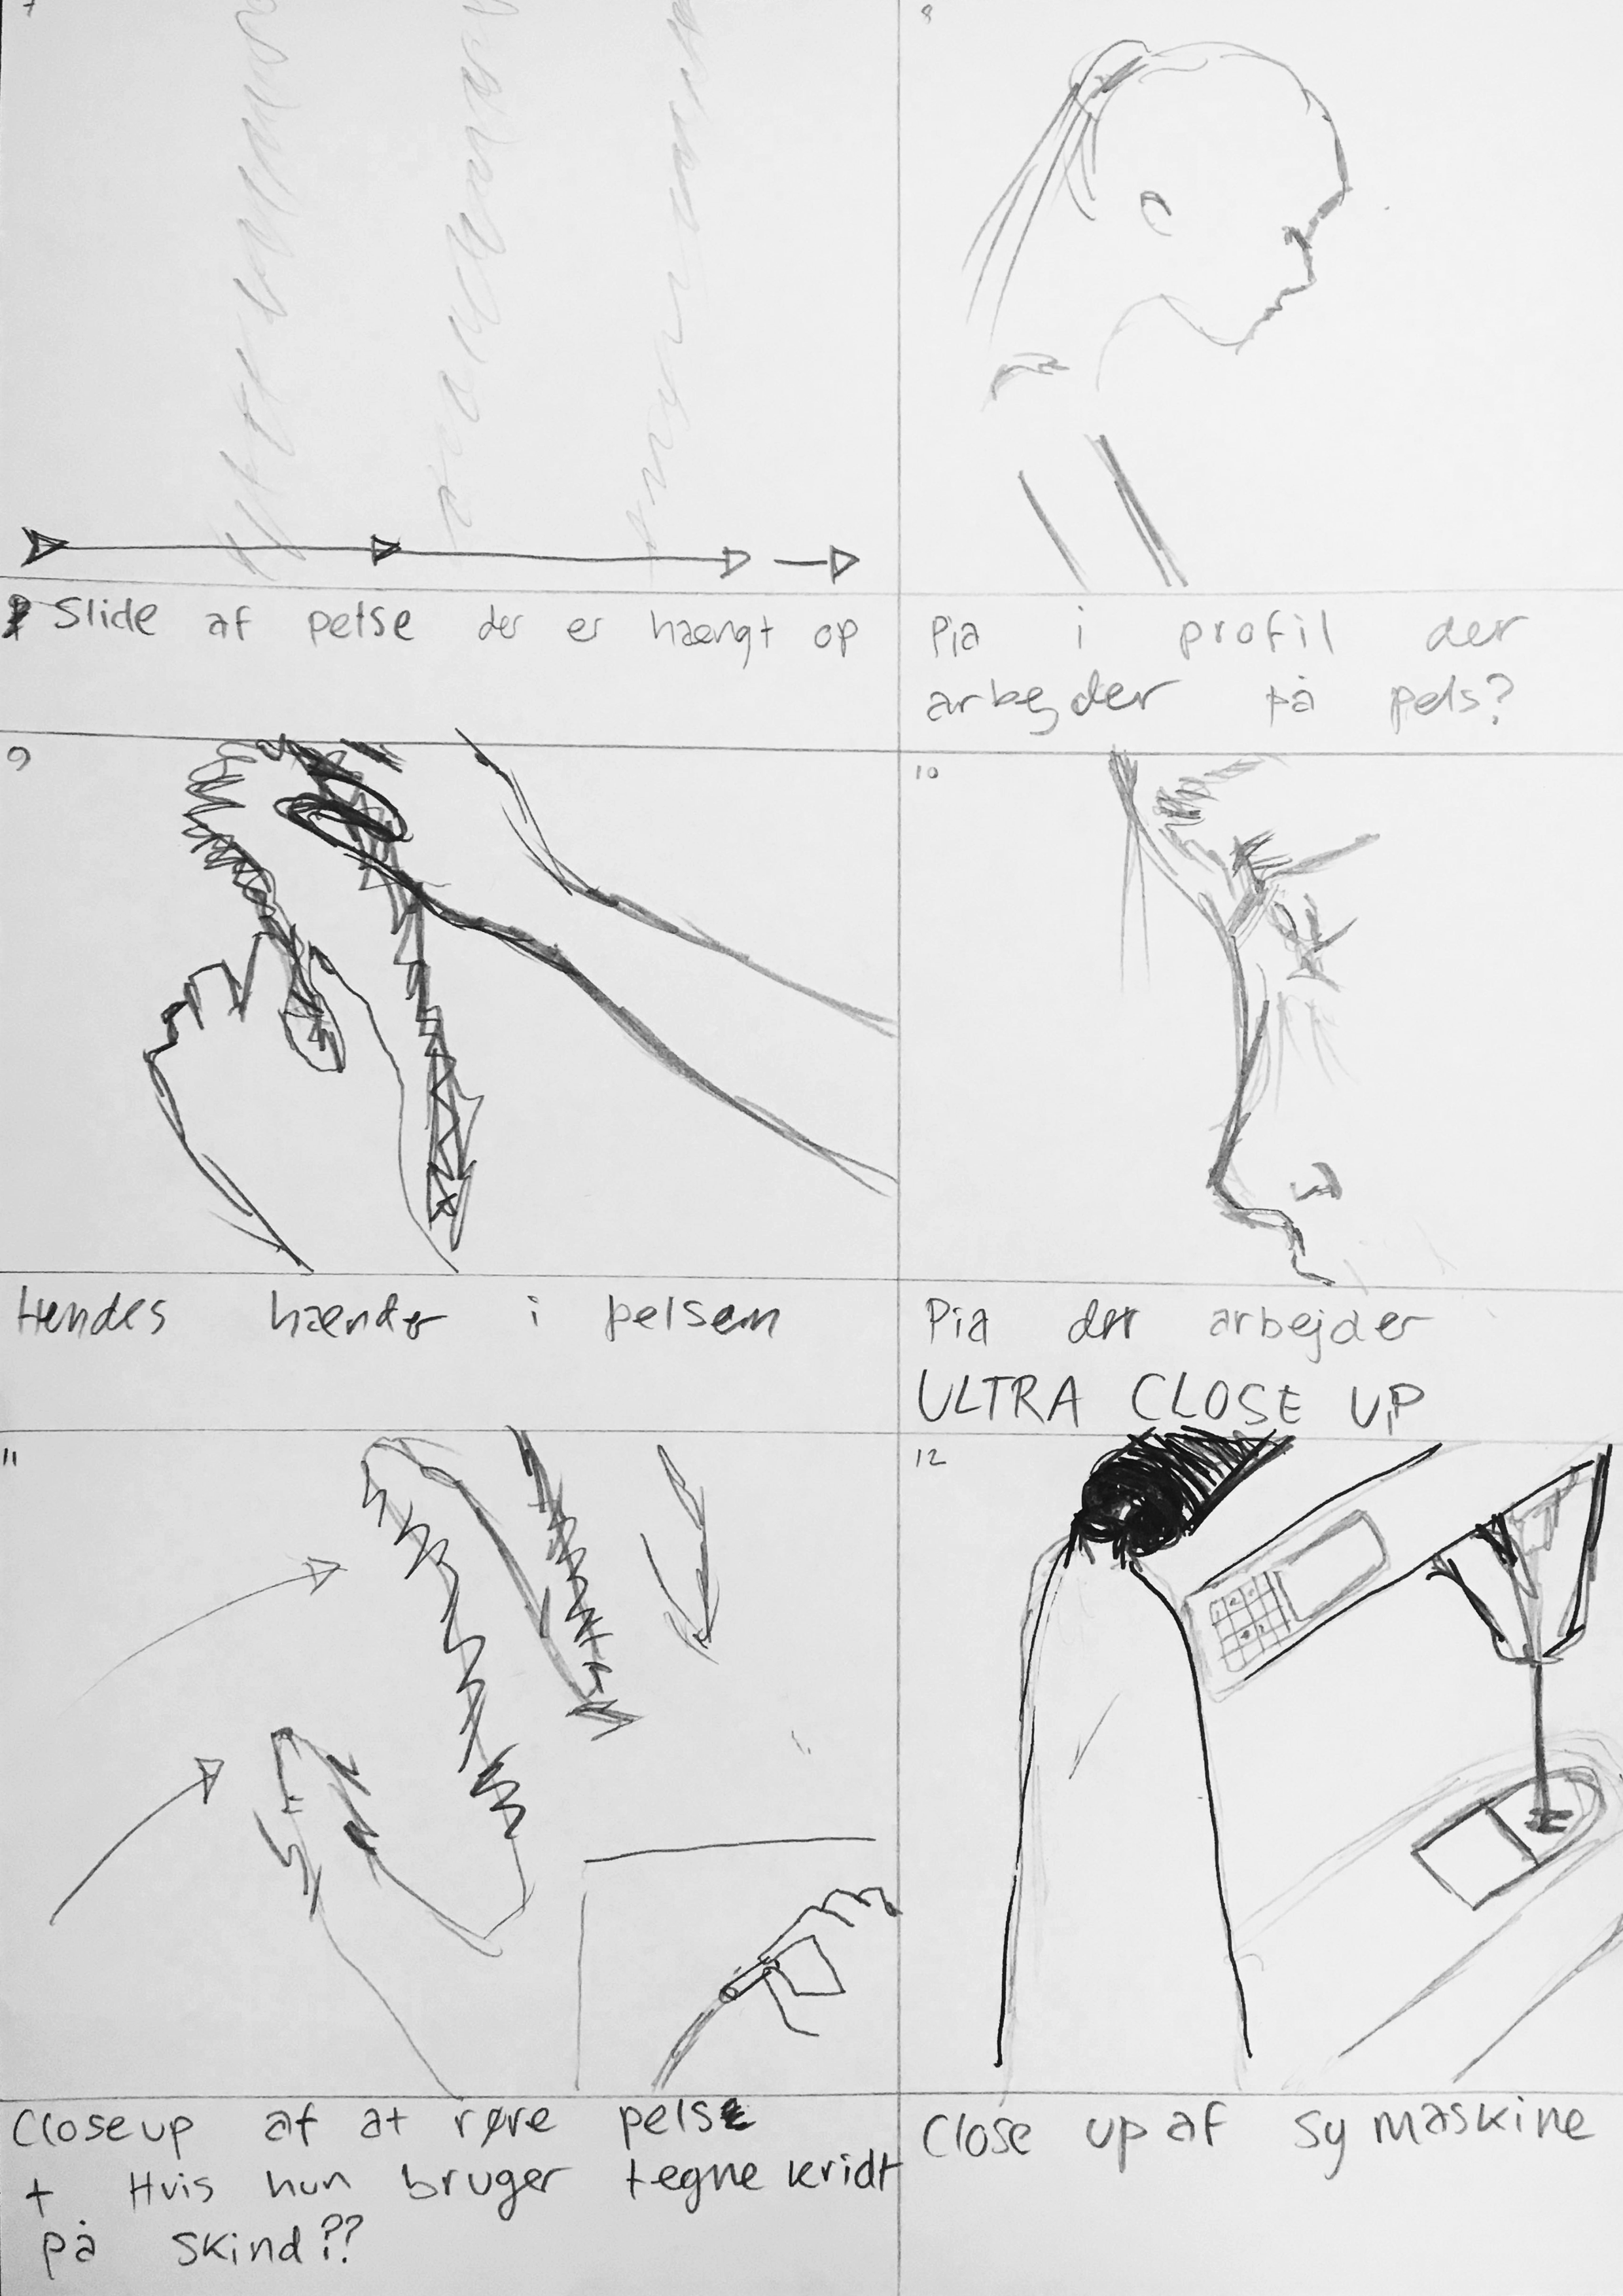 7
Slide af pelse der er hængt op
8
Pia i profil der
arbejder på pels?
9
Hendes hænder i pelsen
10
Pia der arbejder
ULTRA CLOSE UP
11
Closeup af at røre pelse
+ Hvis hun bruger tegne kridt
på skind??
12
Close up af sy maskine